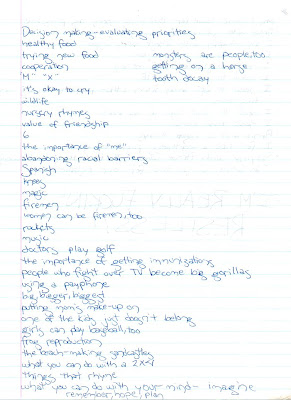 Decision making-evaluating priorities
healthy food
trying new food
monsters are people, too
cooperation
getting on a horse
M" "X"
tooth decay
it's okay to cry
wildlife
nursery rhymes
value of friendship
6
the importance of "me"
abandoning racial barriers
Spanish
trees
magic
firemen
women can be firemen, too
rockets
music
doctors play golf
the importance of getting immunizations
people who fight over TV become big gorillas
using a payphone
big, bigger, biggest
putting mom's make-up on
one of the kids just doesn't belong
girls can play baseball, too
frog reproduction
the beach-making sandcastles
what you can do with a 2x4
things that rhyme
what you can do with your mind- imagine
remember, hope, plan